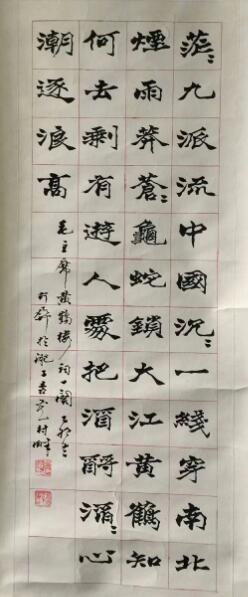 茫〻九派流中國沉〻一綫穿南北
煙雨莽蒼〻龜蛇鎖大江黃鶴知
何去剩有遊人處把酒酹滔〻心
潮逐浪高
毛主席黃鶴樓詞一闋